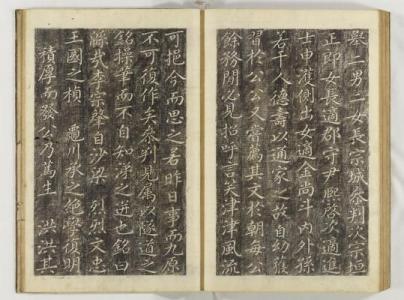 舉二男二女長宗城參判次宗垣
正郎女長適郡守尹熙啓次適進
士申濩側出女適金尚斗內外孫
若干人德壽以通家之故自幼獲
習於公公又嘗薦其文於朝每公
餘務閒必見招呼言笑津津風流
可挹今而思之若昨日事而九原
不可復作矣參判見屬以隧道之
銘操筆而不自知涕之迸也銘曰
濊貳李宗肇自沙梁 烈烈文忠
王國之楨 龜川承之絕學復明
積厚而發公乃篤生 洪洪其